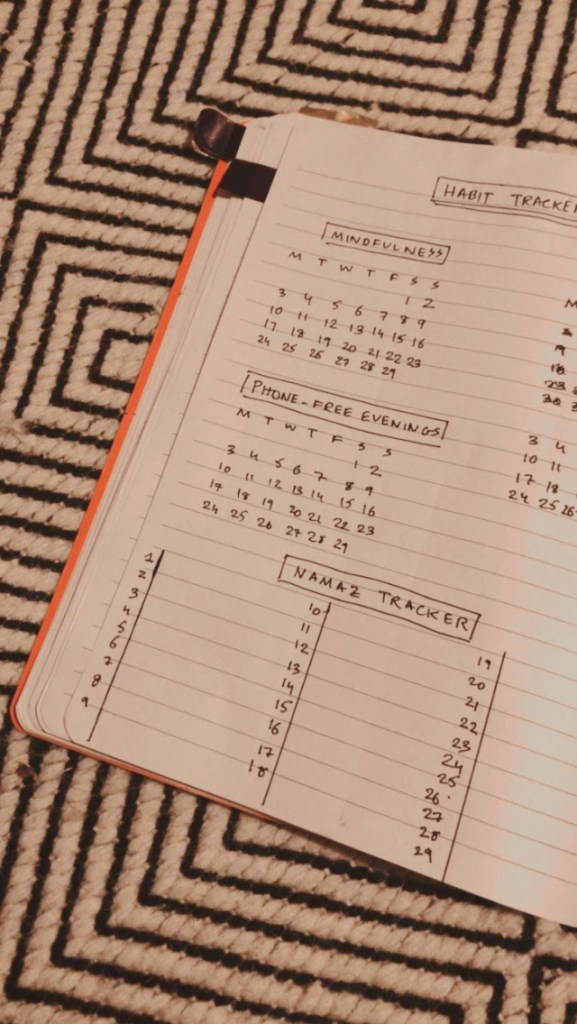 HABIT TRACKER
MINDFULNESS
M T W T F S S
1 2
3 4 5 6 7 8 9
10 11 12 13 14 15 16
17 18 19 20 21 22 23
24 25 26 27 28 29
PHONE-FREE EVENINGS
M T W T F S S
1 2
3 4 5 6 7 8 9
10 11 12 13 14 15 16
17 18 19 20 21 22 23
24 25 26 27 28 29
M
3 4
10 11
17 18
24 25 26
NAMAZ TRACKER
1
2
3
4
5
6
7
8
9
10
11
12
13
14
15
16
17
18
19
20
21
22
23
24
25
26
27
28
29